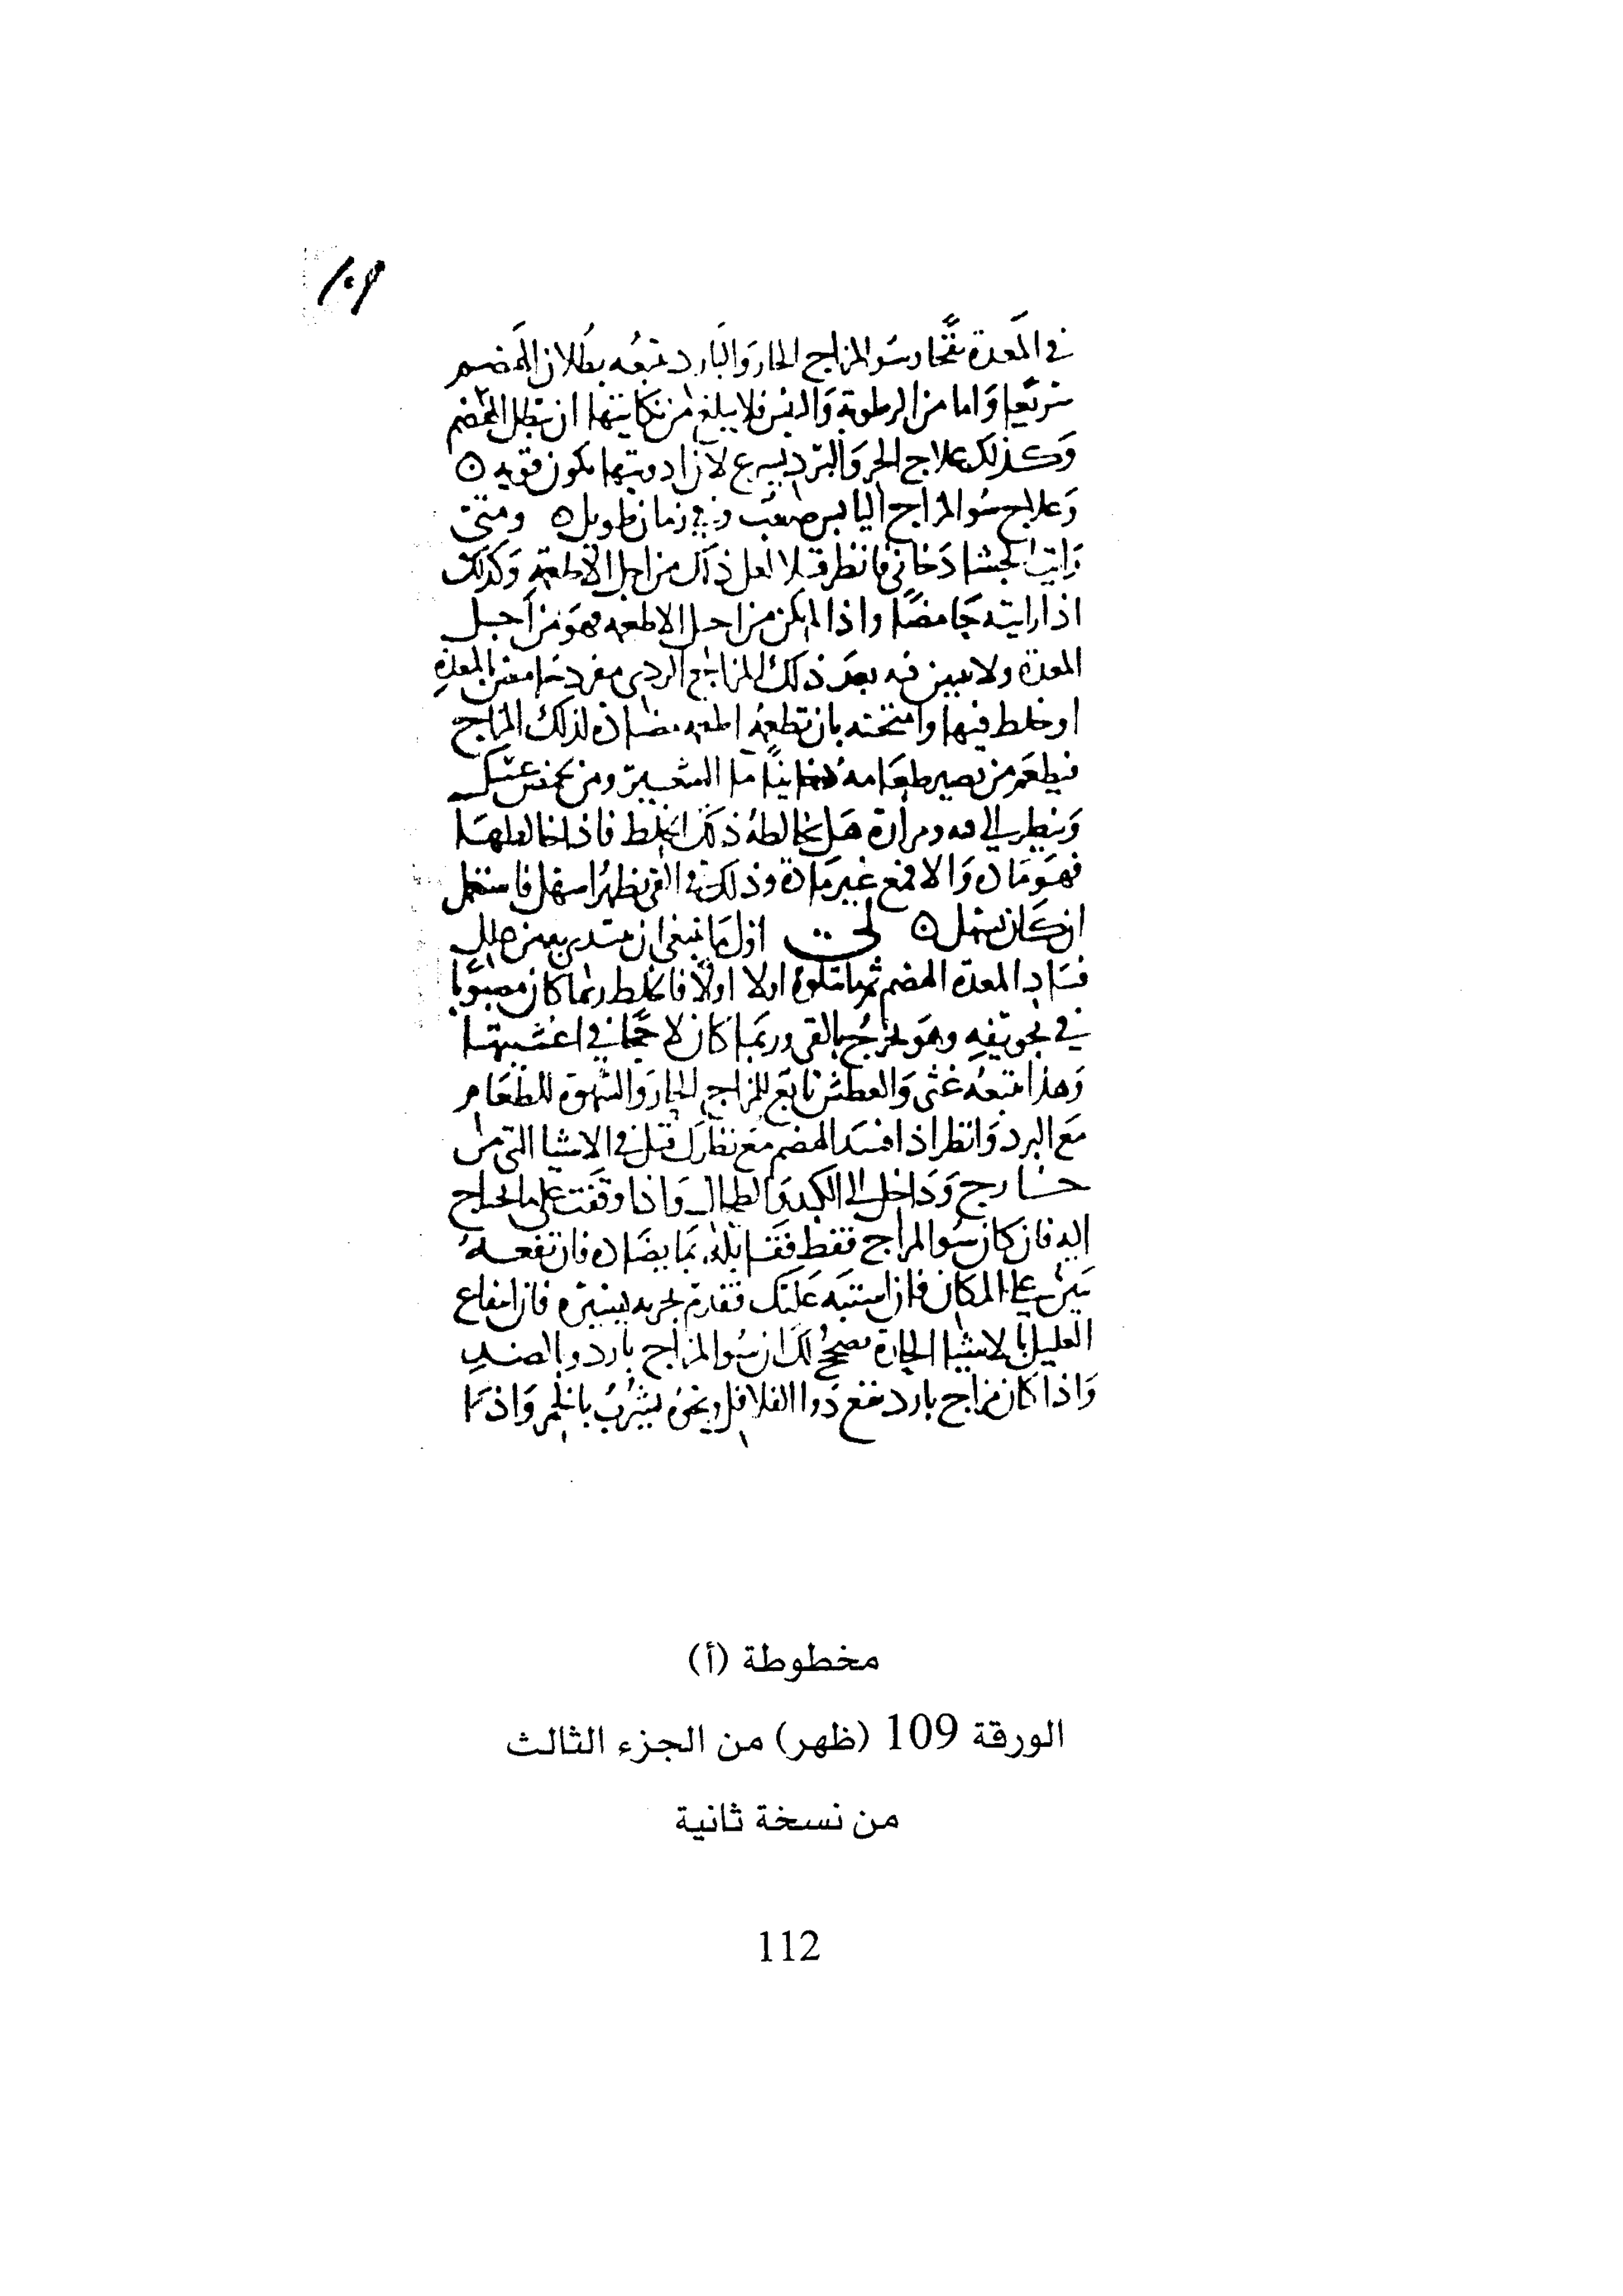 ١٠٩
في المعدة نتحا وسو المزاج الحار والبارد يتبعه بطلان الهضم
سريعا واما من الرطوبة واليبس فلا يبلغ من نكايتها ان تبطل الهضم
وكذلك علاج الحر والبرد يسرع لان ادويتها تكون قويه ه
وعلاج سو المزاج اليابس صعب وفي زمان طويل ه ومتى
رايت الجشا دخاني فانظر قبلا لعل ذلك من اجل الاطعمة وكذلك
اذا رايته حامضا واذا لم يكن من اجل الاطعمه فهو من اجل
المعدة ولا تبين فيه بعد ذلك المزاج الردى مفرد
او خلط فيها وامتحنه بان تطعمه اطعمه مضاده لذلك المزاج
فيطعم من يصير طعامه دخانيا ما الشعير ومن يحمض عسل
وينظر الى هل يخالطه ذلك الخلط فاذا خالطهما
فهو مادة والا فمع غير مادة وذلك في القي يظهر اسهل فاستعمل
ان كان يسهل ه لى اول ما ينبغي ان تبتدي به من علل
فساد المعدة الهضم ثم ما تتلوه اولا اولا فالخلط ربما كان مصبوبا
في تجويفه وهو يخرج بالقي وربما كان لاحجا في اغشيتها
وهذا يتبعه غثى والعطش تابع للمزاج الحار والشهوة للطعام
مع البرد وانظر اذا فسد الهضم مع نظرك قبل في الاشيا التي من
خارج وداخل الى الكبد والطحال واذا وقفت على ما تحتاج
اليه فان كان سو المزاج فقط فقابله بما يضاده فان نفعه
سرع على المكان فان اشتبه عليك فتقدم بتجربه يسيرة فان انتفاع
العليل بالاشيا الحارة يصحح لك ان سو المزاج بارد وبالضد
واذا كان مزاج بارد نفع دوا الفلافل ونحوه يشرب بالخمر واذا
مخطوطة (أ)
الورقة 109 (ظهر) من الجزء الثالث
من نسخة ثانية
112